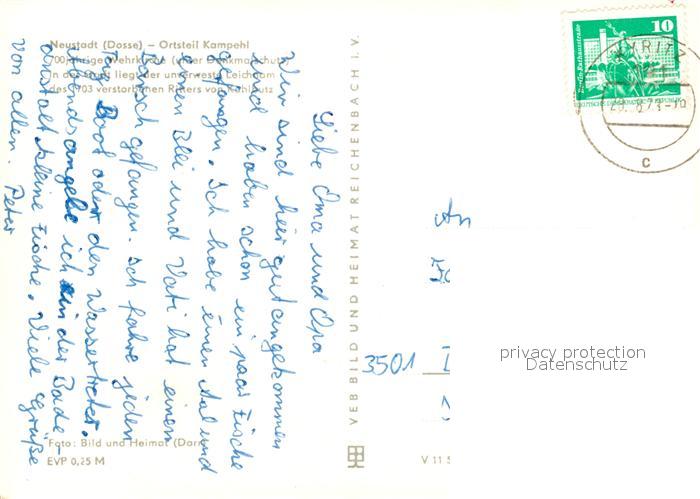 Neustadt (Dosse) – Ortsteil Kampehl
700jährige Wehrkirche (unter Denkmalschutz)
In der Gruft liegt der unverweste Leichnam
des 1703 verstorbenen Ritters von Kahlbutz
Liebe Oma und Opa
Wir sind hier gut angekommen
und haben schon ein paar Fische
gefangen. Ich habe einen Aal und
einen Blei und Vati hat einen
Barsch gefangen. Ich fahre jeden
Tag Boot oder den Wassertreter.
Abends angele ich in der Bade-
anstalt kleine Fische. Viele Grüße
von allen. Peter
Foto: Bild und Heimat
EVP 0,25 M
VEB BILD UND HEIMAT REICHENBACH I. V.
V 11
10
Berlin-Rathausstraße
DEUTSCHE DEMOKRATISCHE REPUBLIK
KYRITZ
c
An
3501
privacy protection
Datenschutz